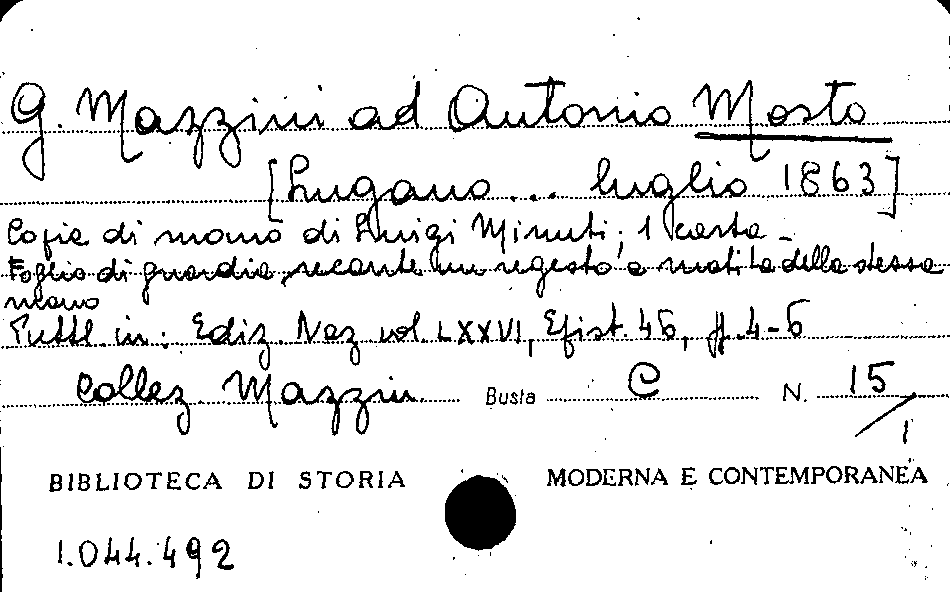 G. Mazzini ad Antonio Mosto
[Lugano ... luglio 1863]
Copia di mano di Luigi Minuti; 1 carta -
Foglio di guardia, recante un regesto a matita della stessa
mano
Pubbl. in: Ediz. Naz vol. LXXVI, Epist. 46, pp. 4-6
Collez. Mazzini Busta C N. 15/1
BIBLIOTECA DI STORIA MODERNA E CONTEMPORANEA
1.044.492